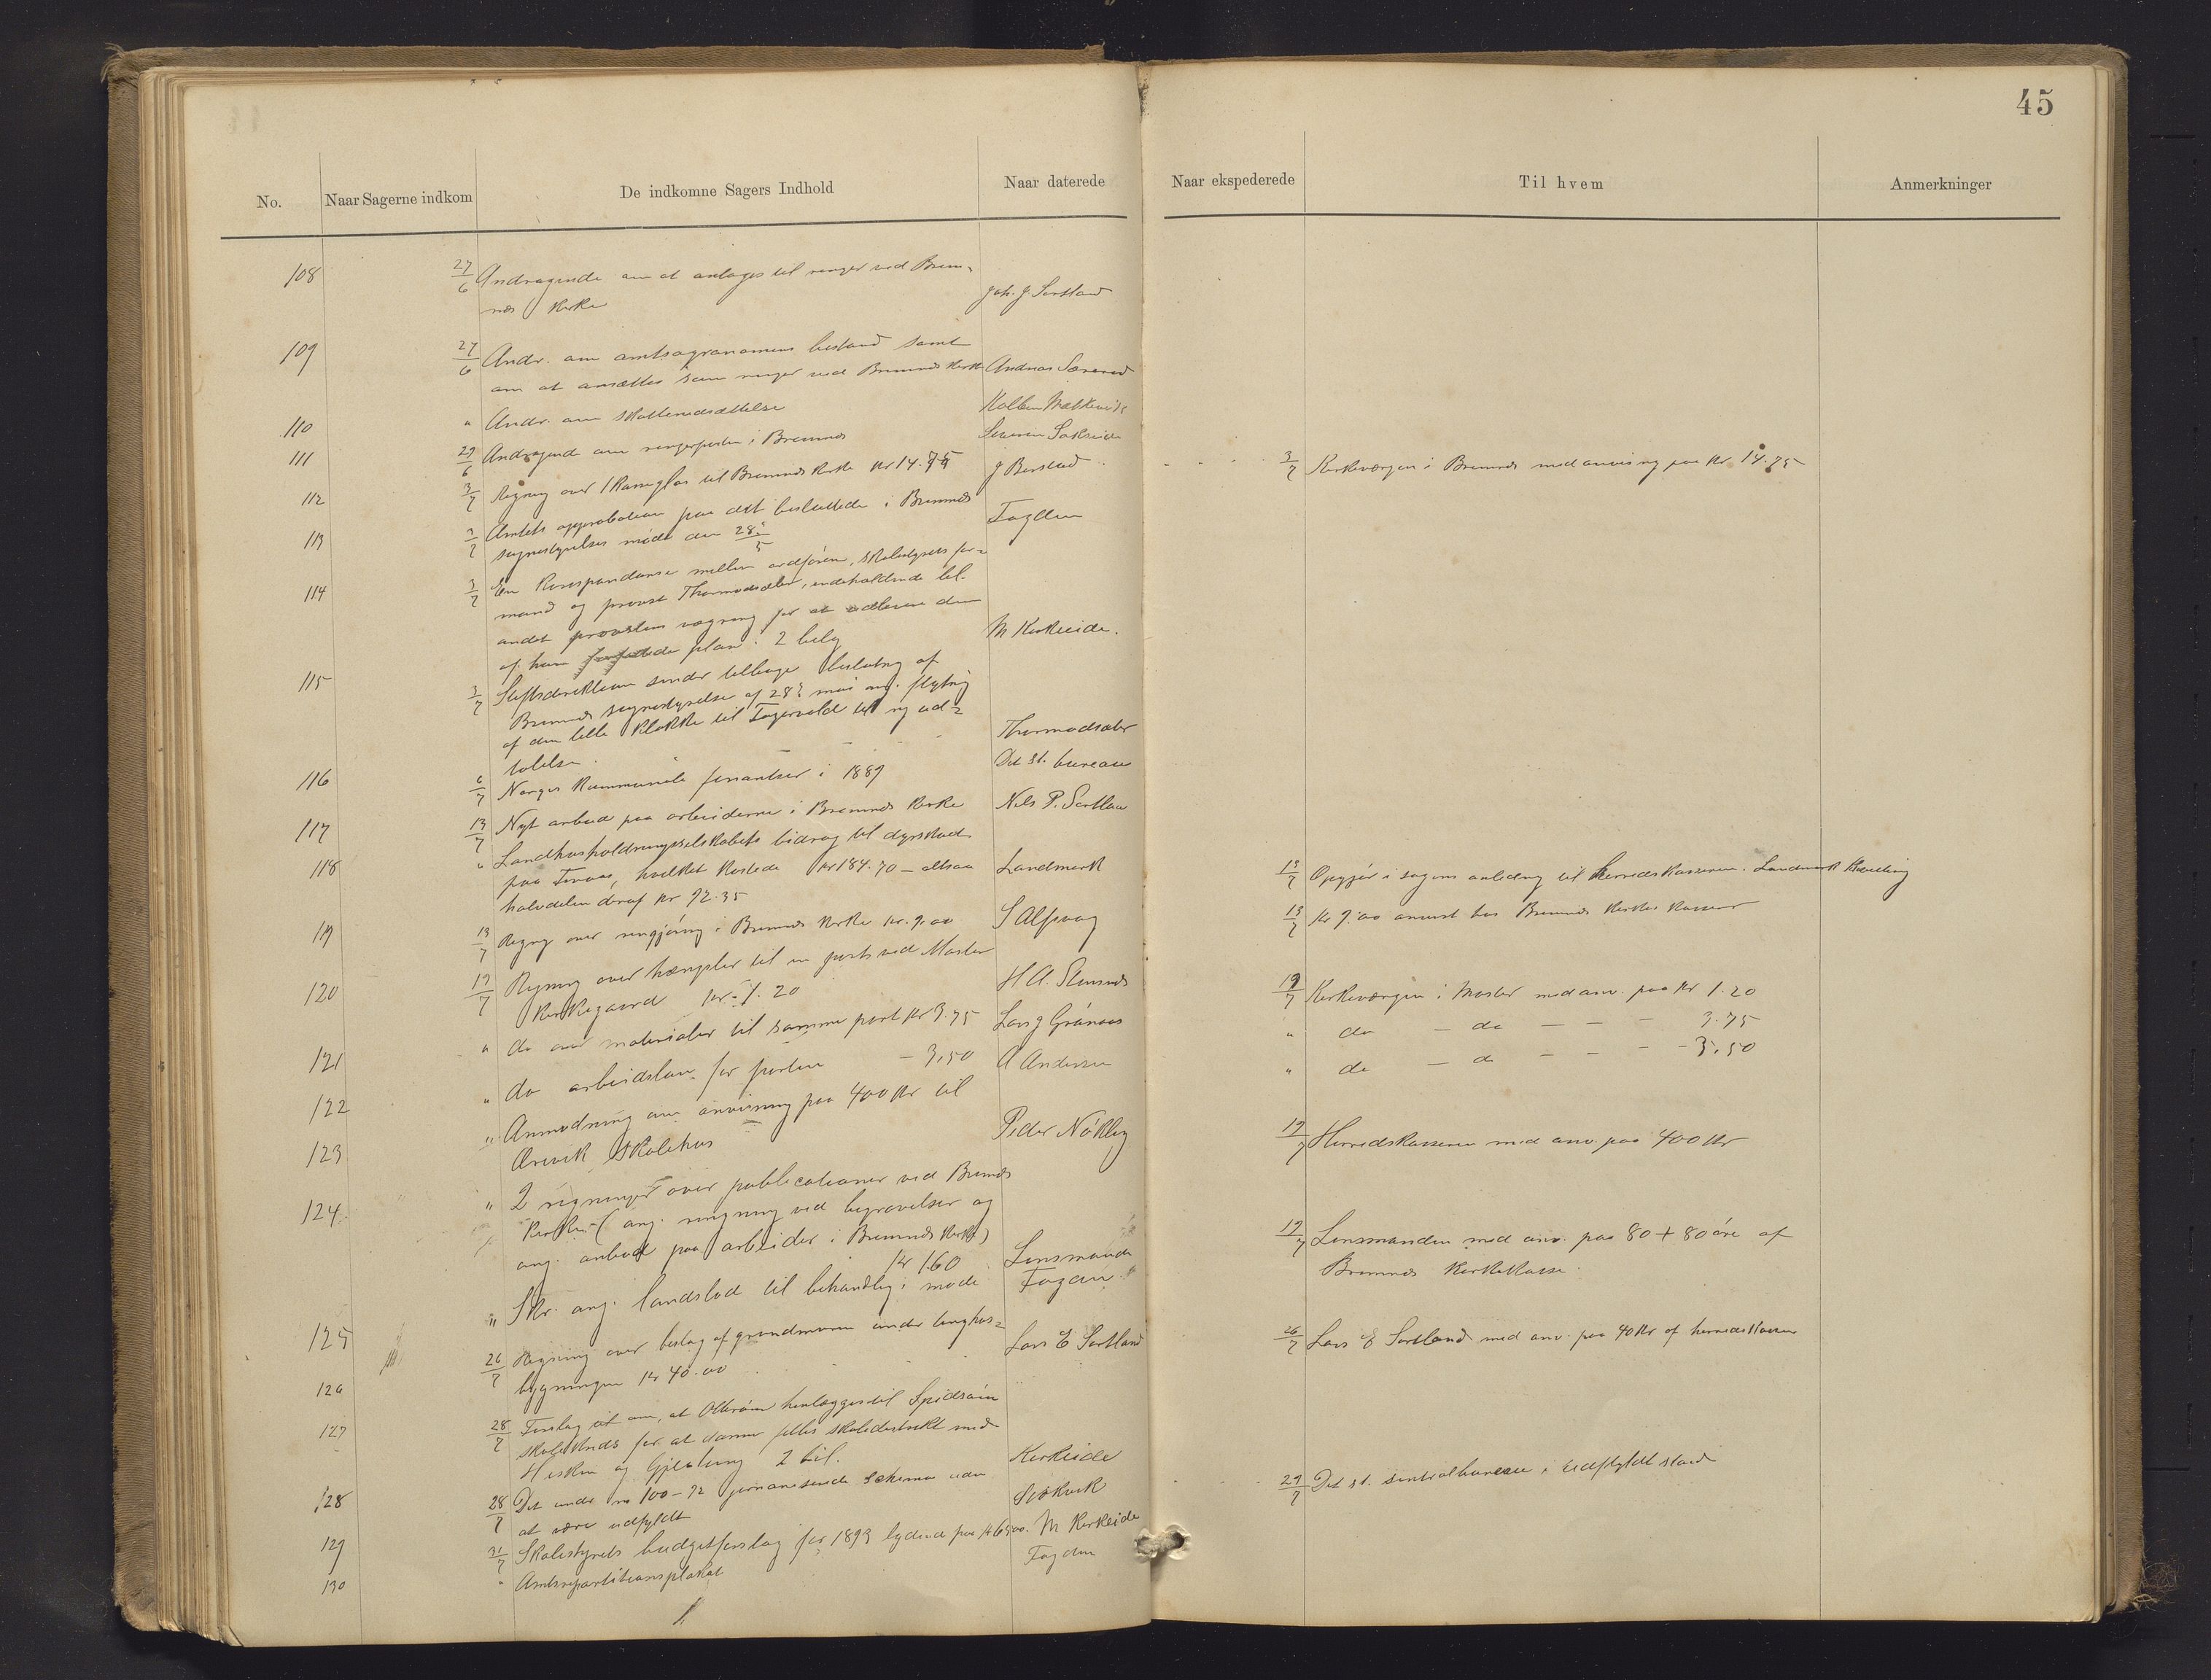 45
No.
Naar Sagerne indkom
De indkomne Sagers Indhold
Naar daterede
Naar ekspederede
Til hvem
Anmerkninger
108 27/6 Andragende om at antages til ringer ved Brem-
nes Kirke Joh. J. Sortland
109 27/6 Andr. om amtsagronomens bistand samt
om at ansættes som ringer ved Bremnes Kirke Andreas
110 " Andr. om skattenedsættelse
111 29/6 Andragende om ringerposten i Bremnes
112 3/7 Regning over 1 Kasse glas til Bremnes Kirke Kr 14.75 J Berstad
3/7 Kirkeværgen i Bremnes med anvisning paa Kr. 14.75
113 3/7 Amtets approbation paa det besluttede i Bremnes
sognestyrelses møde den 28de/5 Fogden
114 3/7 En Korespondanse mellem ordføren, skolestyrets for-
mand og provst Thormodsæter, indeholdende bl.
andet provstens vægring for at udlevere den
af ham plan. 2 bilag M Kirkeide.
115 3/7 Stiftsdirektionen sender tilbage beslutning af
Bremnes sognestyrelse af 28de mai ang. flytning
af den lille Klokke til til ny ud-
talelse. Thormodsæter
116 6/7 Norges Kommunale finantser i 1889 Det st. bureau
117 13/7 Nyt anbud paa arbeiderne i Bremnes Kirke Nils P. Sortland
118 " Landhusholdningsselskabets bidrag til dyrskuet
paa Finaas, hvilket kostede Kr 184.70 – altsaa Landmark
halvdelen deraf Kr 92.35
13/7 Opgjør i sagens anledning til Herredskasseren. Landmark
119 13/7 Regng over rengjøring i Bremnes Kirke Kr. 9.00 S Alfsvaag
13/7 Kr 9.00 anvist hos Bremnes Kirkes Kasserer
120 19/7 Regning over hængsler til en port ved Moster
Kirkegaard Kr. 1.20
19/7 Kirkeværgen i Moster med anv. paa Kr 1.20
121 " do over materialer til samme port Kr 3.75 Lars J Grønaas
" do – do – – – 3.75
122 " do arbeidsløn for porten – 3.50 A Andersen
" do – do – – – 3.50
123 " Anmodning om anvisning paa 400 Kr til
skolehus Peder Nökling
19/7 Herredskasseren med anv. paa 400 Kr
124. " 2 regninger over publicationer ved Bremnes
Kirke – (ang. ringning ved begravelser og
ang. anbud paa arbeider i Bremnes Kirke)
Kr 1.60 Lensmanden
19/7 Lensmanden med anv. paa 80 + 80 øre af
Bremnes Kirkekasse.
125 " Skr. ang. landslod til behandling i møde Fogden.
126 26/7 Regning over beslag af grundmuren under tinghus-
bygningen Kr 40.00 Lars E Sortland
26/7 Lars E Sortland med anv. paa 40 Kr af herredskassen
127 28/7 Forslag om, at henlægges til Spidsøen
skolekreds for at danne fælles skoledistrikt med
Hisken og 2 bil. Kirkeide
128 28/7 Det under no 100–92 schema uden
at være udfyldt
29/7 Det st. sentralbureau i udfyldt stand
129 31/7 Skolestyrets budgetforslag for 1893 lydende paa M Kirkeide
130 " Amtsrepartitionsplakat Fogden